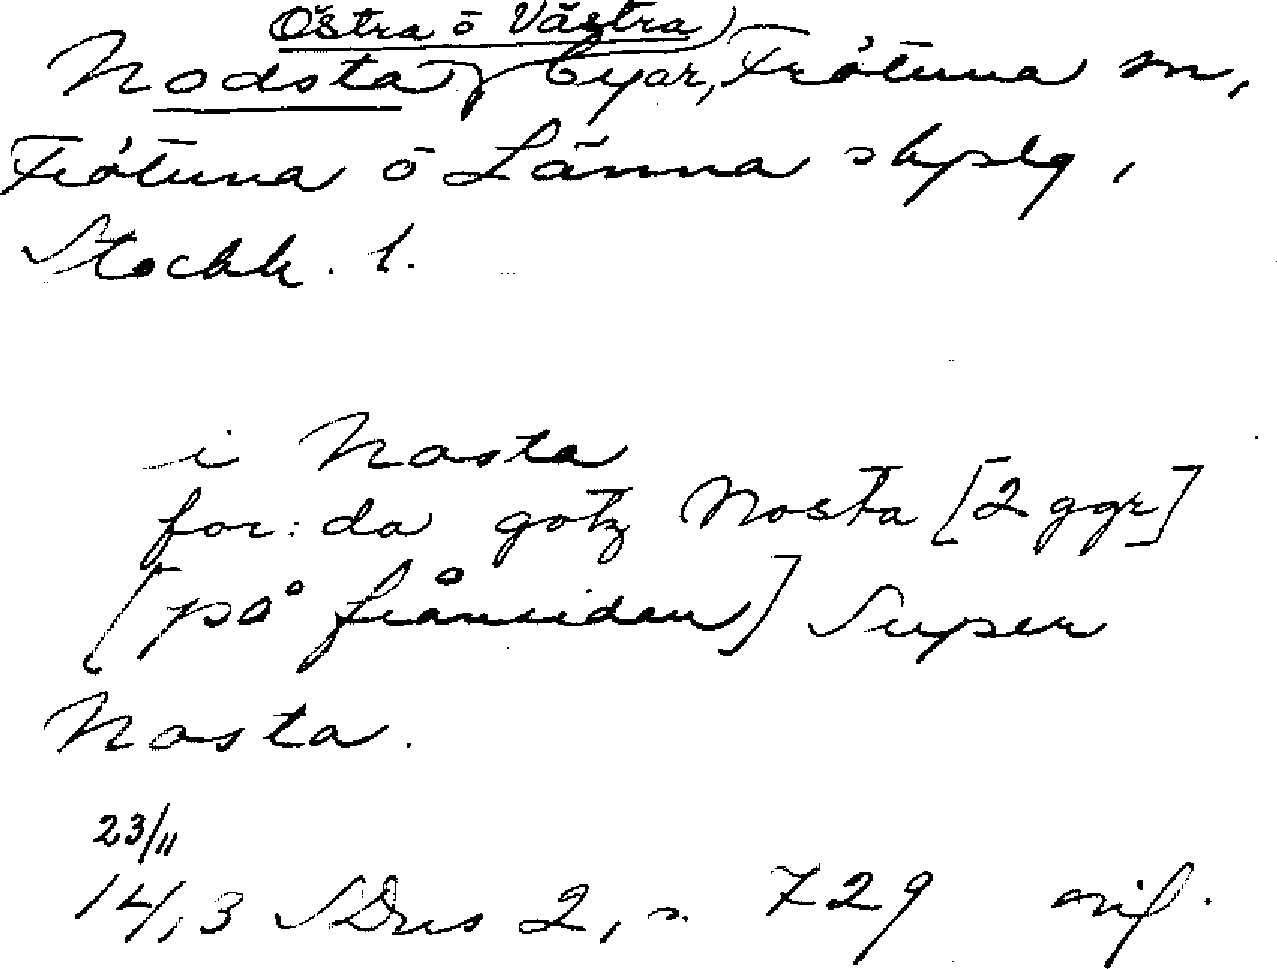 Östra o Västra
Nodsta byar, Frötuna sn,
Frötuna o Länna skplg,
Stockh. l.
i Nosta
for: da gotz Nosta [2 ggr]
[på frånsidan] Super
Nosta.
23/11
1413 SDns 2, s. 729 orif.